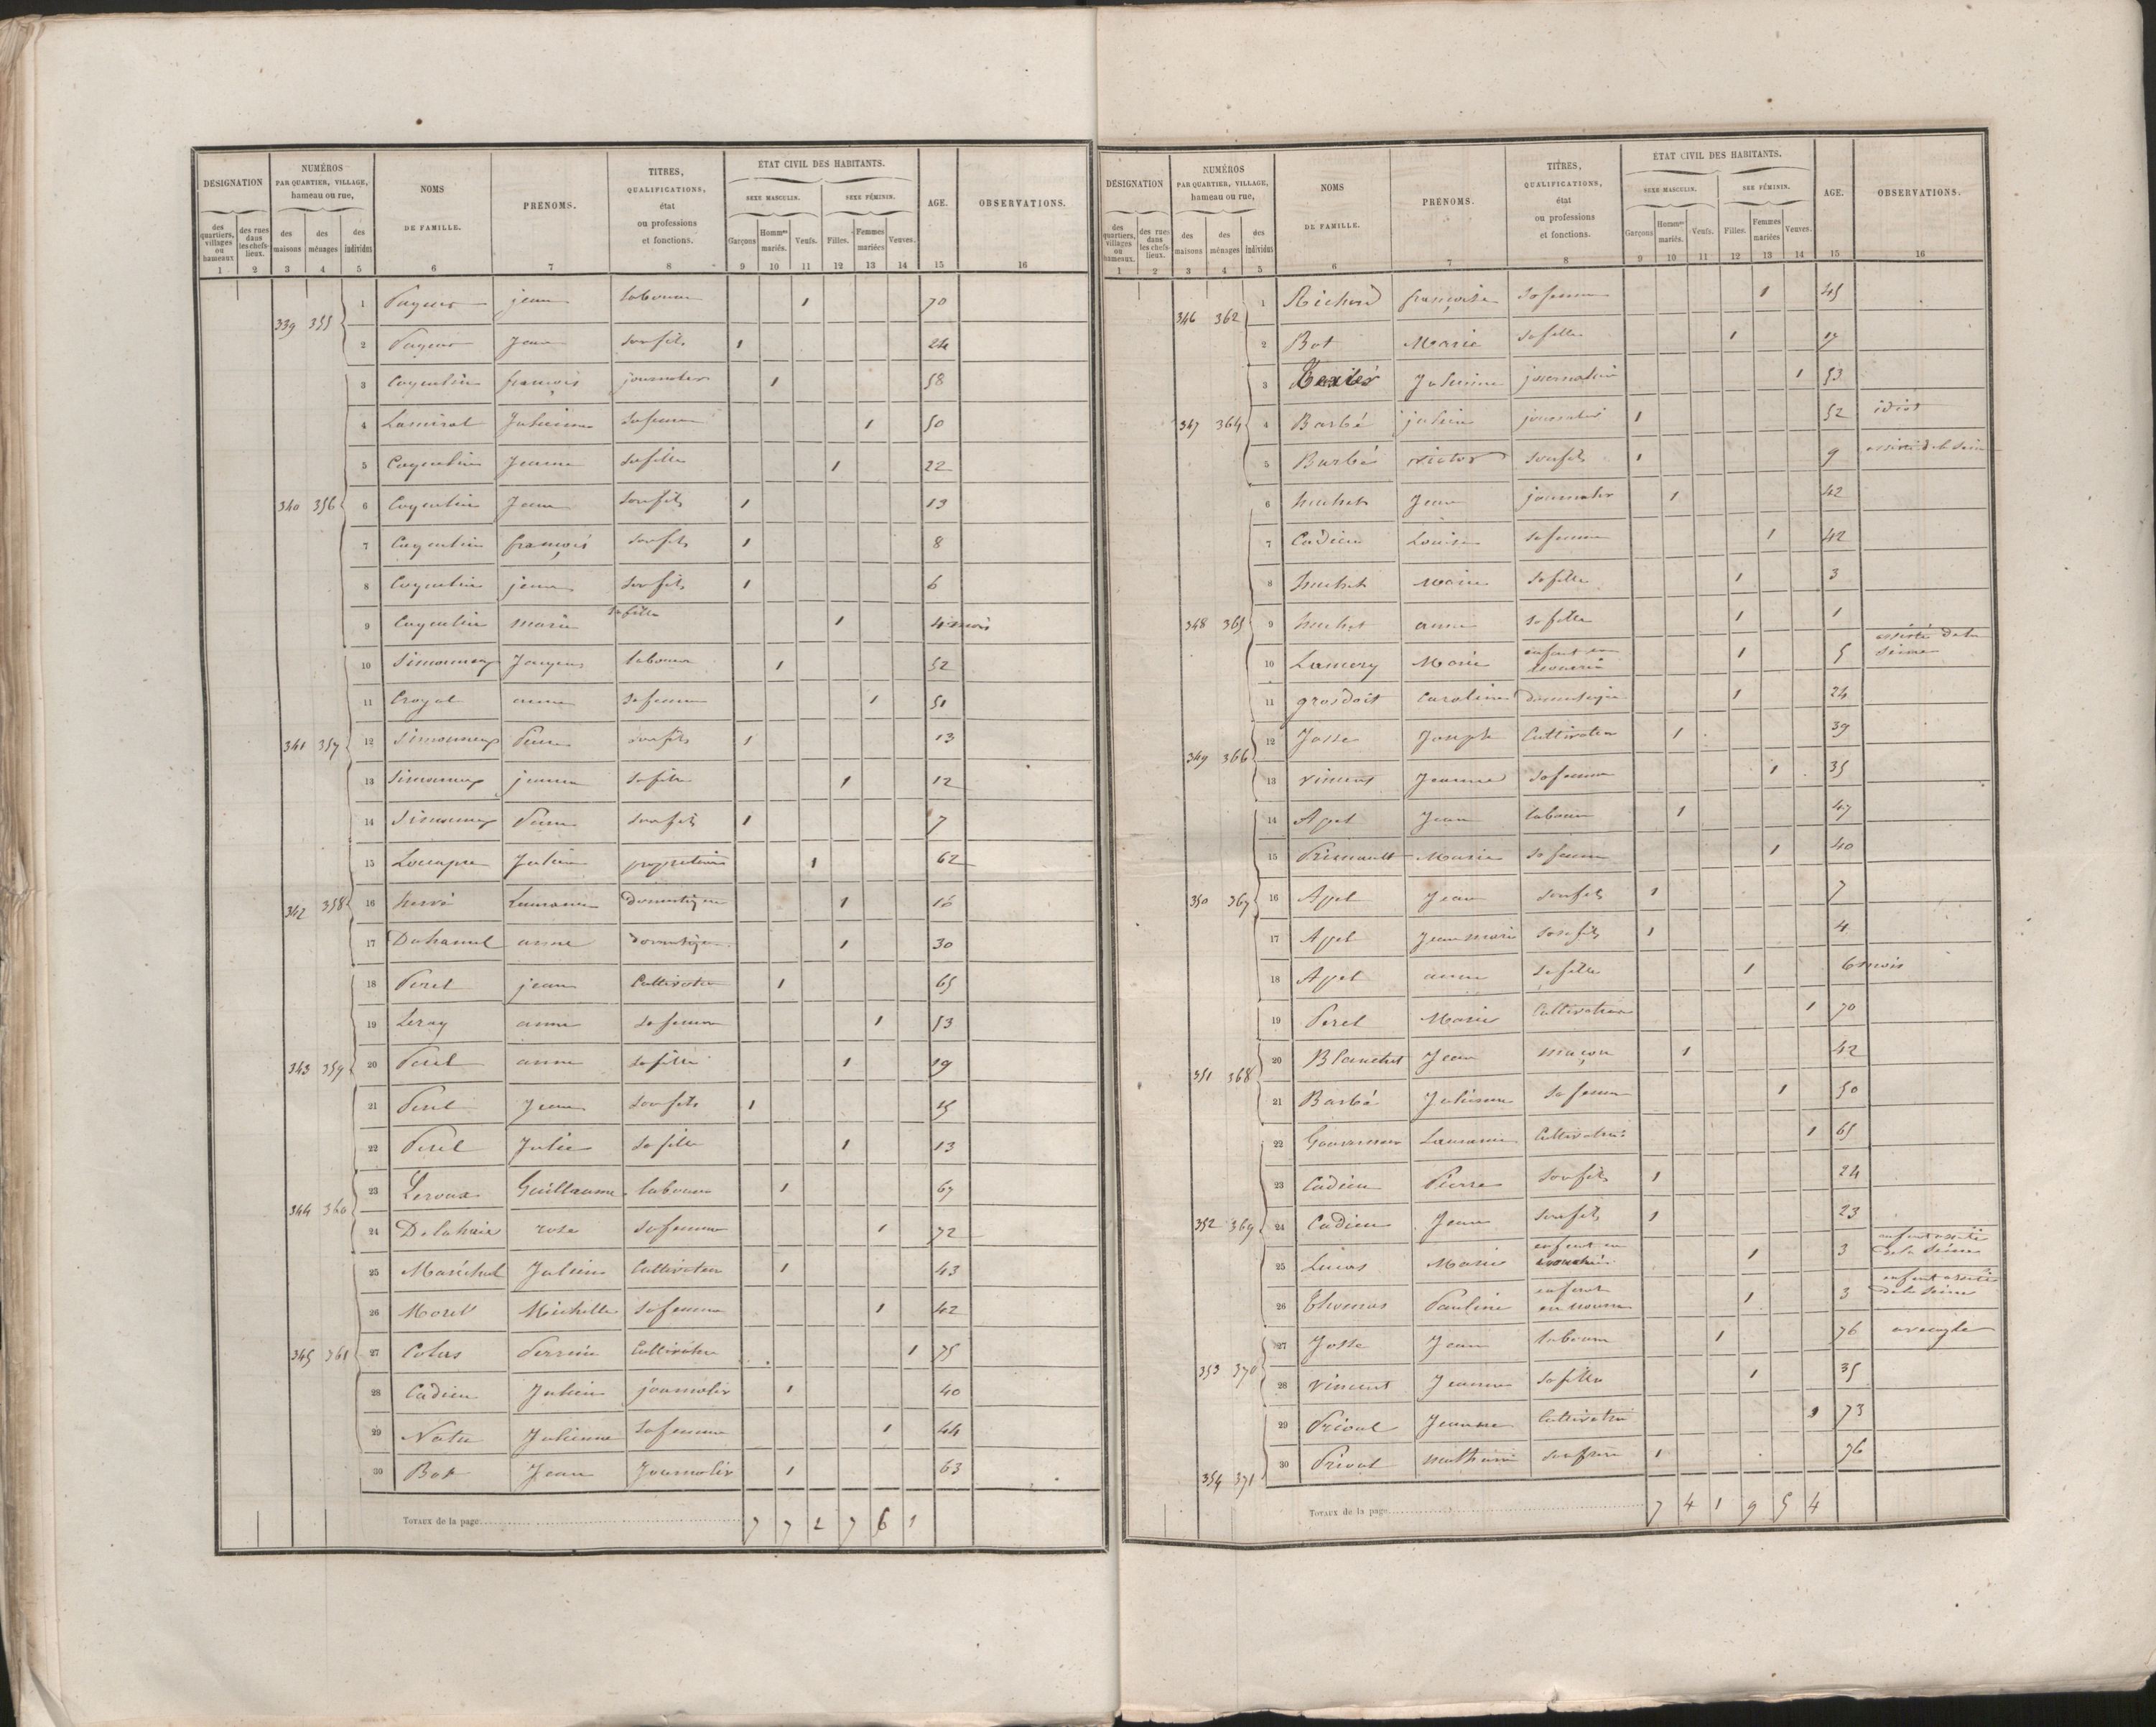 DÉSIGNATION NUMÉROS PAR QUARTIER, VILLAGE, hameau ou rue, NOMS DE FAMILLE. PRÉNOMS. TITRES, QUALIFICATIONS, état ou professions et fonctions. ÉTAT CIVIL DES HABITANTS. AGE. OBSERVATIONS.
SEXE MASCULIN. SEXE FÉMININ.
des quartiers, villages ou hameaux des rues dans les chefs-lieux. des maisons des ménages des individus Garçons Hommes mariés. Veufs. Filles. Femmes mariées Veuves.
1 2 3 4 5 6 7 8 9 10 11 12 13 14 15 16
339 355 1 jean laboureur 1 70
2 Jean son fils 1 24
3 Coquelin françois journalier 1 58
4 Lamiral Julienne sa femme 1 50
5 Coquelin Jeanne sa fille 1 22
340 356 6 Coquelin Jean son fils 1 13
7 Coquelin françois son fils 1 8
8 Coquelin jean son fils 1 6
9 Coquelin marie sa fille 1 4 mois
10 Simonneux Jacques laboureur 1 52
11 Croyal anne sa femme 1 51
341 357 12 Simonneux Pierre son fils 1 13
13 Simonneux jeanne sa fille 1 12
14 Simonneux Pierre son fils 1 7
15 Julien propriétaire 1 62
342 358 16 hervé domestique 1 16
17 Duhamel anne domestique 1 30
18 Perel jean Cultivateur 1 65
19 Leray anne sa femme 1 53
343 359 20 Perel anne sa fille 1 19
21 Perel Jean son fils 1 15
22 Perel Julie sa fille 1 13
344 360 23 Leroux Guillaume laboureur 1 67
24 Delahaie rose sa femme 1 72
25 Maréchal Julien Cultivateur 1 43
26 Morel Michelle sa femme 1 42
345 361 27 Colas Perrine Cultivatrice 1 75
28 Cadieu Julien journalier 1 40
29 Julienne sa femme 1 44
30 Bot Jean Journalier 1 63
TOTAUX de la page 7 7 2 7 6 1
DÉSIGNATION NUMÉROS PAR QUARTIER, VILLAGE, hameau ou rue, NOMS DE FAMILLE. PRÉNOMS. TITRES, QUALIFICATIONS, état ou professions et fonctions. ÉTAT CIVIL DES HABITANTS. AGE. OBSERVATIONS.
SEXE MASCULIN. SEXE FÉMININ.
des quartiers, villages ou hameaux. des rues dans les chefs-lieux. des maisons des ménages des individus Garçons Hommes mariés. Veufs. Filles. Femmes mariées Veuves.
1 2 3 4 5 6 7 8 9 10 11 12 13 14 15 16
346 362 1 Richard françoise sa femme 1 45
2 Bot Marie sa fille 1 17
3 Julienne journalière 1 53
347 364 4 Barbé julien journalier 1 52 idiot
5 Barbé victor son fils 1 9 assisté de la Seine
6 huchet Jean journalier 1 42
7 Cadieu Louise sa femme 1 42
8 huchet Marie sa fille 1 3
348 365 9 huchet anne sa fille 1 1
10 Lamory Marie enfant en nourrice 1 5 assistée de la Seine
11 grosdoit Caroline domestique 1 24
349 366 12 Josse Joseph Cultivateur 1 39
13 vincent Jeanne sa femme 1 35
14 Apel Jean laboureur 1 47
15 Primault Marie sa femme 1 40
350 367 16 Apel Jean son fils 1 7
17 Apel Jean marie son fils 1 4
18 Apel anne sa fille 1 6 mois
19 Perel Marie Cultivatrice 1 70
351 368 20 Blanchet Jean maçon 1 42
21 Barbé Julienne sa femme 1 50
22 Cultivatrice 1 65
23 Cadieu Pierre son fils 1 24
352 369 24 Cadieu Jean son fils 1 23
25 Lucas Marie enfant en nourrice 1 3 enfant assisté de la Seine
26 Thomas Pauline enfant en nourrice 1 3 enfant assisté de la Seine
27 Josse Jean laboureur 1 76 aveugle
353 370 28 vincent Jeanne sa fille 1 35
29 Prioul Jeanne Cultivatrice 1 73
354 371 30 Prioul mathurin son frère 1 76
TOTAUX de la page 7 4 1 9 5 4